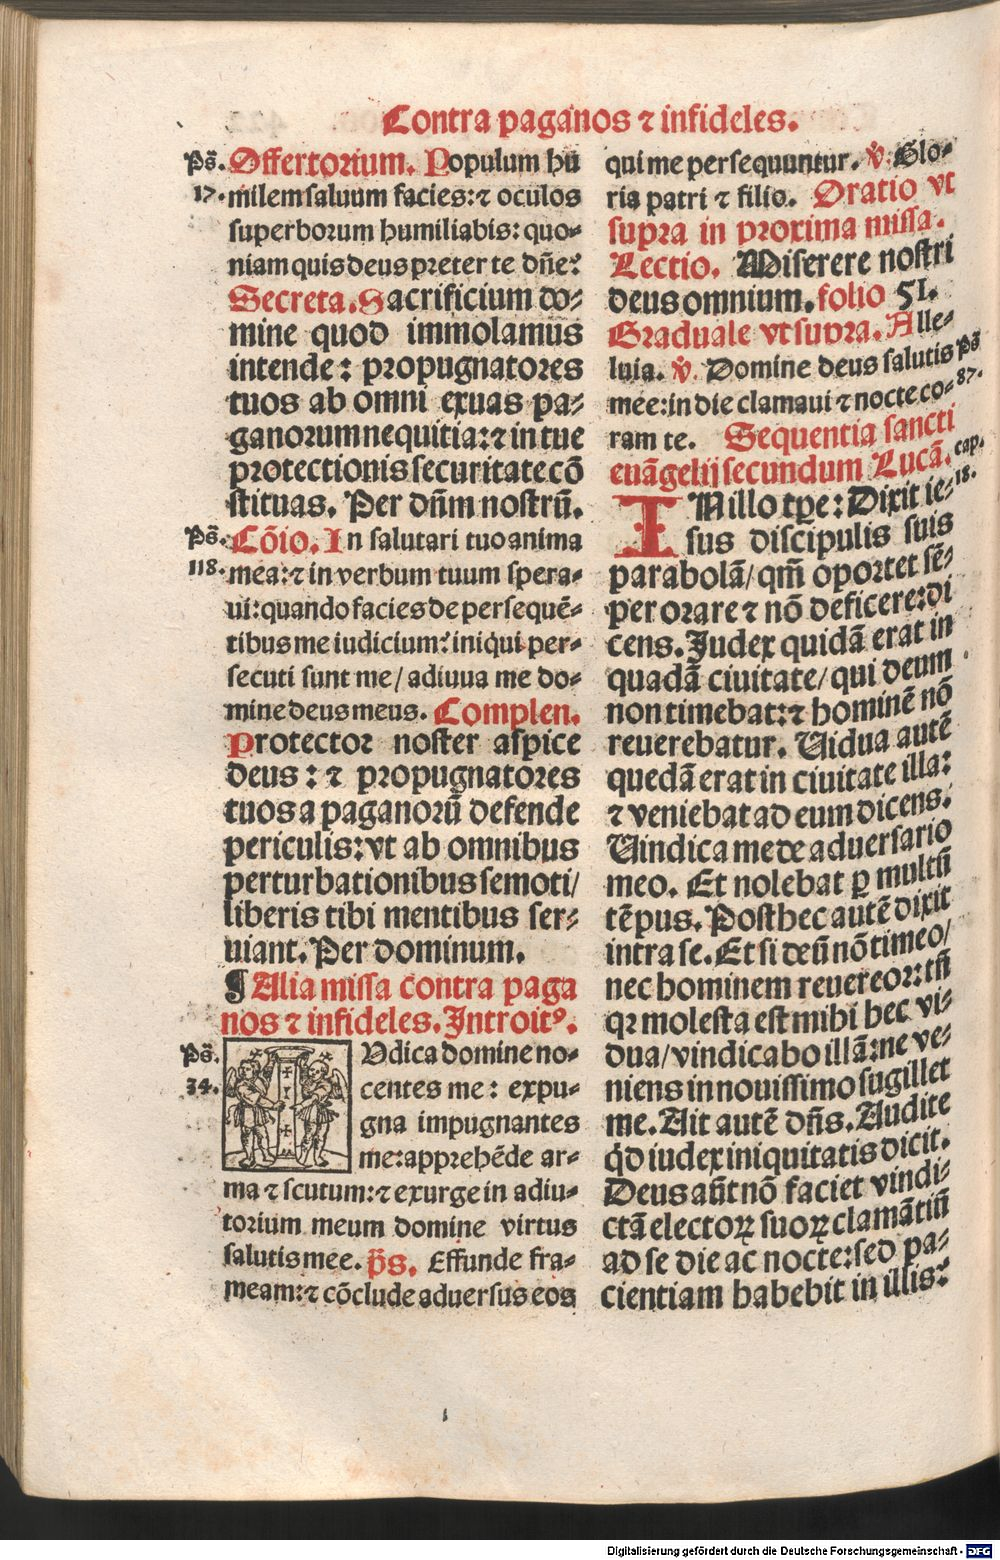 Contra paganos ⁊ infideles.
Ps̄. Offertorium. Populum hu
17. milem saluum facies: ⁊ oculos
superborum humiliabis: quo-
niam quis deus preter te dn̄e?
Secreta. Sacrificium do-
mine quod immolamus
intende: propugnatores
tuos ab omni exuas pa-
ganorum nequitia: ⁊ in tue
protectionis securitate cō
stituas. Per dn̄m nostrū.
Ps̄. Cōio. In salutari tuo anima
118. mea: ⁊ in verbum tuum spera-
ui: quando facies de persequē-
tibus me iudicium? iniqui per-
secuti sunt me/ adiuua me do-
mine deus meus. Complen.
Protector noster aspice
deus: ⁊ propugnatores
tuos a paganorū defende
periculis: vt ab omnibus
perturbationibus semoti/
liberis tibi mentibus ser-
uiant. Per dominum.
¶ Alia missa contra paga
nos ⁊ infideles. Introitꝰ.
Ps̄. Udica domine no-
34. centes me: expu-
gna impugnantes
me: apprehēde ar-
ma ⁊ scutum: ⁊ exurge in adiu-
torium meum domine virtus
salutis mee. p̄s. Effunde fra-
meam: ⁊ cōclude aduersus eos
qui me persequuntur. ℣. Glo-
ria patri ⁊ filio. Oratio vt
supra in proxima missa.
Lectio. Miserere nostri
deus omnium. folio 51.
Graduale vt supra. Alle-
luia. ℣. Domine deus salutis Ps̄
mee: in die clamaui ⁊ nocte co- 87.
ram te. Sequentia sancti
euāgelij secundum Lucā. cap.
IN illo tꝑe: Dixit ie- 18.
sus discipulis suis
parabolā/ qm̄ oportet sē-
per orare ⁊ nō deficere: di
cens. Iudex quidā erat in
quadā ciuitate/ qui deum
non timebat: ⁊ hominē nō
reuerebatur. Uidua autē
quedā erat in ciuitate illa:
⁊ veniebat ad eum dicens.
Uindica me de aduersario
meo. Et nolebat ꝑ multū
tēpus. Post hec autē dixit
intra se. Et si deū nō timeo/
nec hominem reuereor: tn̄
qꝛ molesta est mihi hec vi-
dua/ vindicabo illā: ne ve-
niens in nouissimo sugillet
me. Ait autē dn̄s. Audite
qd̄ iudex iniquitatis dicit.
Deus aūt nō faciet vindi-
ctā electoꝝ suoꝝ clamātiū
ad se die ac nocte: sed pa-
cientiam habebit in illis?
Digitalisierung gefördert durch die Deutsche Forschungsgemeinschaft - DFG